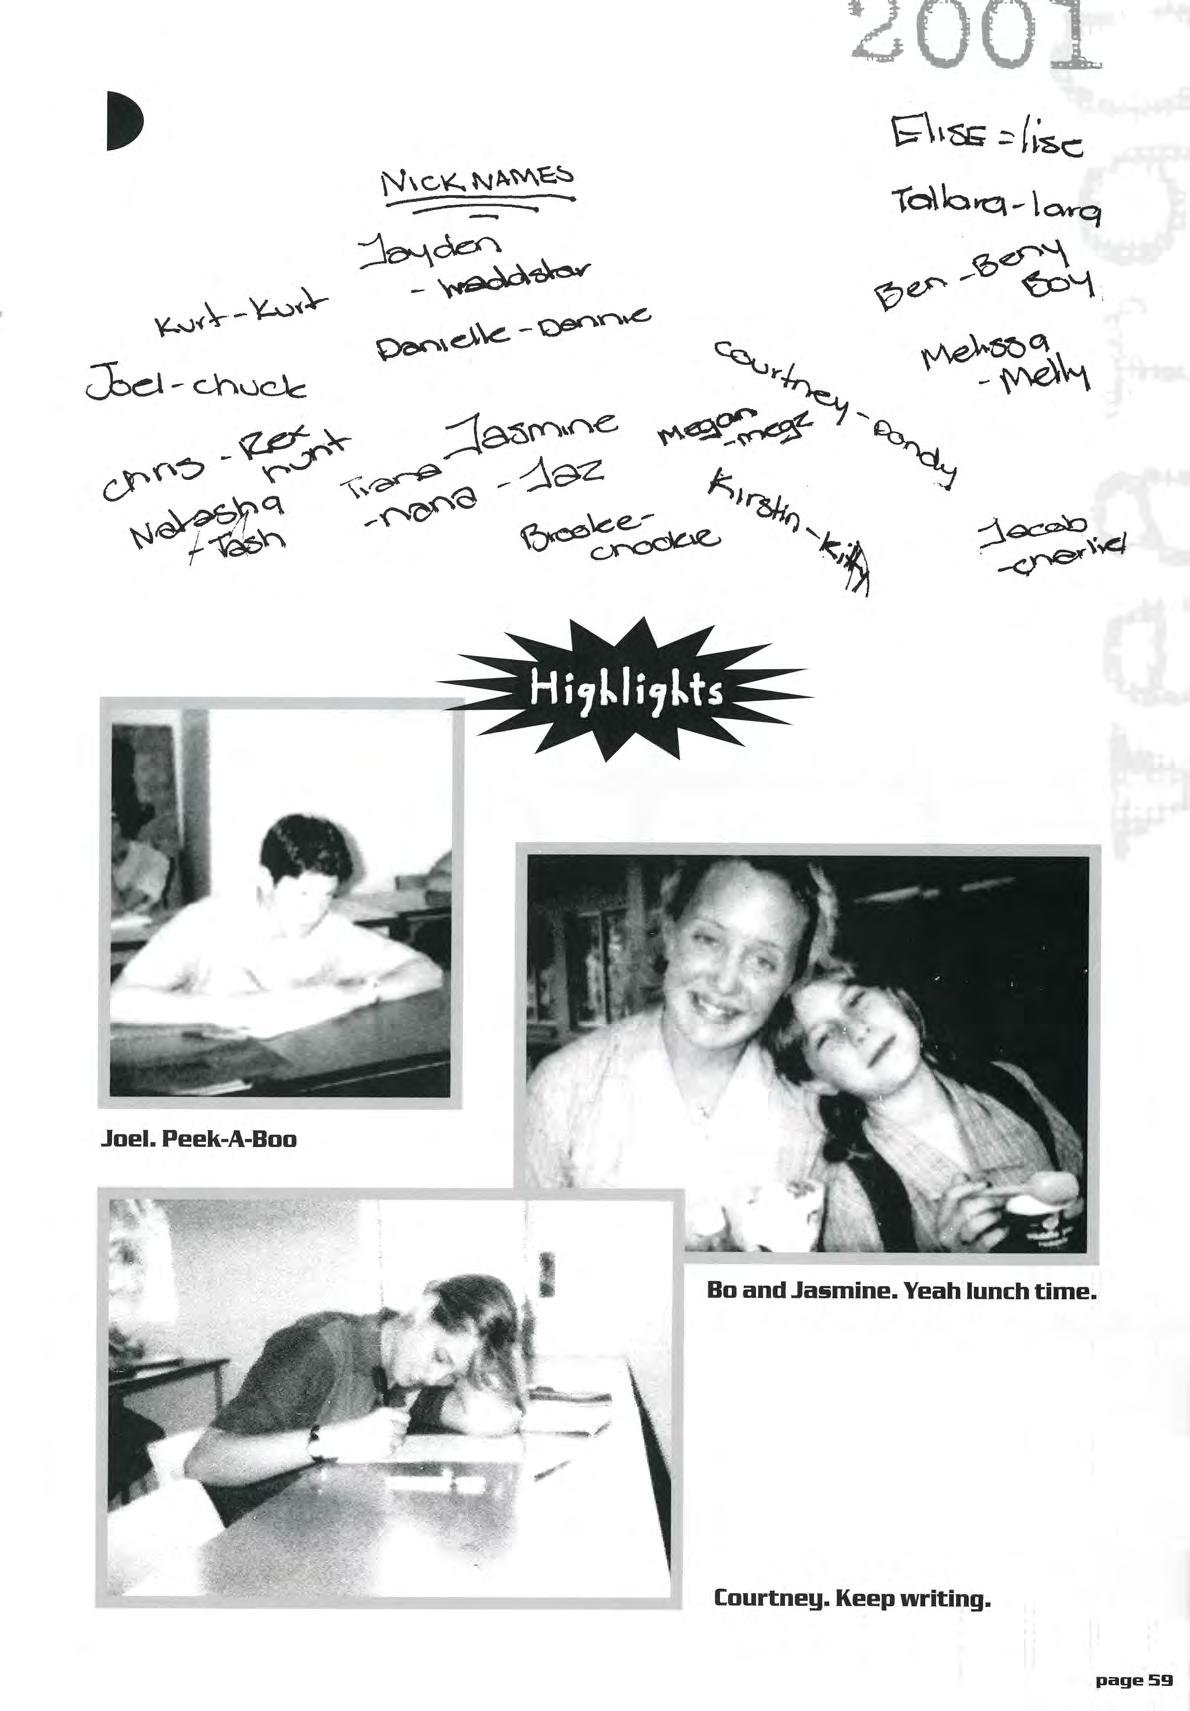 2001
NICKNAMES
Elise = lise
Tallara - lara
Ben - Beny
Boy
Melissa
- Melly
Jayden
- waddstar
Kurt - Kurt
Danielle - Dannie
Joel - chuck
Courtney - Dandy
Chris - Rex
hunt
Jasmine
- Jaz
Megan
- megz
Tiana
- nana
Natasha
- Tash
Brooke -
chookie
Kirstin - Kitty
Jacob
- charlie
Highlights
Joel. Peek-A-Boo
Bo and Jasmine. Yeah lunch time.
Courtney. Keep writing.
page 59